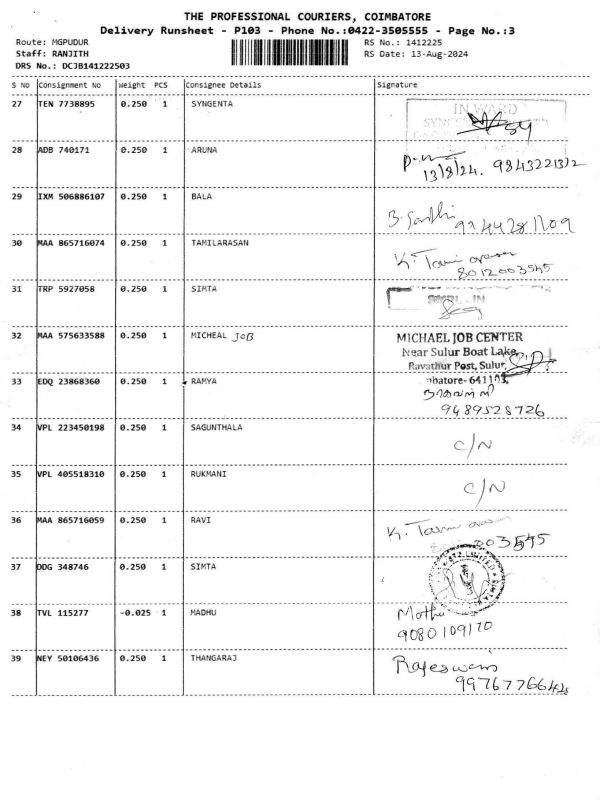 THE PROFESSIONAL COURIERS, COIMBATORE
Delivery Runsheet - P103 - Phone No.:0422-3505555 - Page No.:3
Route: MGPUDUR RS No.: 1412225
Staff: RANJITH RS Date: 13-Aug-2024
DRS No.: DCJB141222503
S No Consignment No Weight PCS Consignee Details Signature
27 TEN 7738895 0.250 1 SYNGENTA
IN WARD
28 ADB 740171 0.250 1 ARUNA
13/8/24. 9843221312
29 IXM 506886107 0.250 1 BALA
30 MAA 865716074 0.250 1 TAMILARASAN
8012003545
31 TRP 5927058 0.250 1 SIMTA
32 MAA 575633588 0.250 1 MICHEAL JOB
MICHAEL JOB CENTER
Near Sulur Boat Lake,
Ravathur Post, Sulur,
33 EDQ 23868360 0.250 1 RAMYA
9489528726
34 VPL 223450198 0.250 1 SAGUNTHALA
C/N
35 VPL 405518310 0.250 1 RUKMANI
C/N
36 MAA 865716059 0.250 1 RAVI
37 DDG 348746 0.250 1 SIMTA
38 TVL 115277 -0.025 1 MADHU
9080109170
39 NEY 50106436 0.250 1 THANGARAJ
Rajeswari